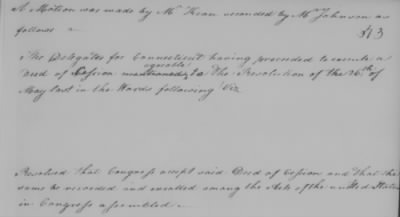 A Motion was made by Mr Kean seconded by Mr Johnson as
follows
The Delegates for Connecticut having proceeded to execute a
agreeable
Deed of Cession to The Resolution of the 26th of
May last in the Words following Viz
Resolved that Congress accept said Deed of Cession and that the
same be recorded and enrolled among the Acts of the united States
in Congress assembled